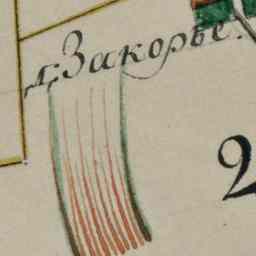 д: Закорье.
2